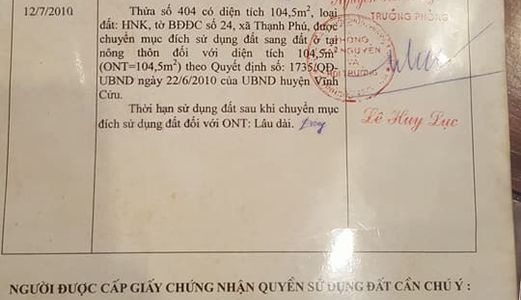 12/7/2010
Thửa số 404 có diện tích 104,5m², loại
đất: HNK, tờ BĐĐC số 24, xã Thạnh Phú, được
chuyển mục đích sử dụng đất sang đất ở tại
nông thôn đối với diện tích 104,5m²
(ONT=104,5m²) theo Quyết định số: 1735/QĐ-
UBND ngày 22/6/2010 của UBND huyện Vĩnh
Cửu.
Thời hạn sử dụng đất sau khi chuyển mục
đích sử dụng đất đối với ONT: Lâu dài.
TRƯỞNG PHÒNG
PHÒNG
NGUYÊN
VÀ
TRƯỜNG
Lê Huy Lục
NGƯỜI ĐƯỢC CẤP GIẤY CHỨNG NHẬN QUYỀN SỬ DỤNG ĐẤT CẦN CHÚ Ý :